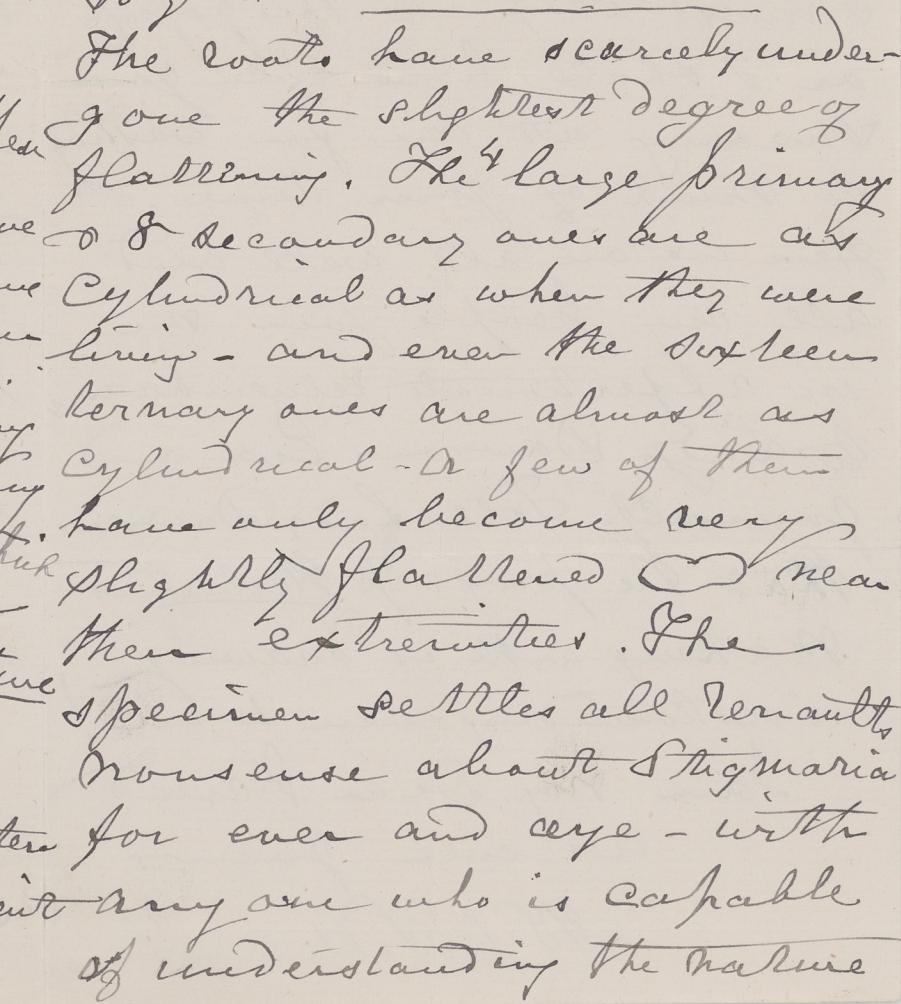 The roots have scarcely under-
gone the slightest degree of
flattening. The 4 large primary
& 8 secondary ones are as
Cylindrical as when they were
living - and even the sixteen
ternary ones are almost as
Cylindrical - A few of them
have only become very
slightly flattened near
their extremities. The
specimen settles all Renaults
nonsense about Stigmaria
for ever and aye - with
any one who is capable
of understanding the nature